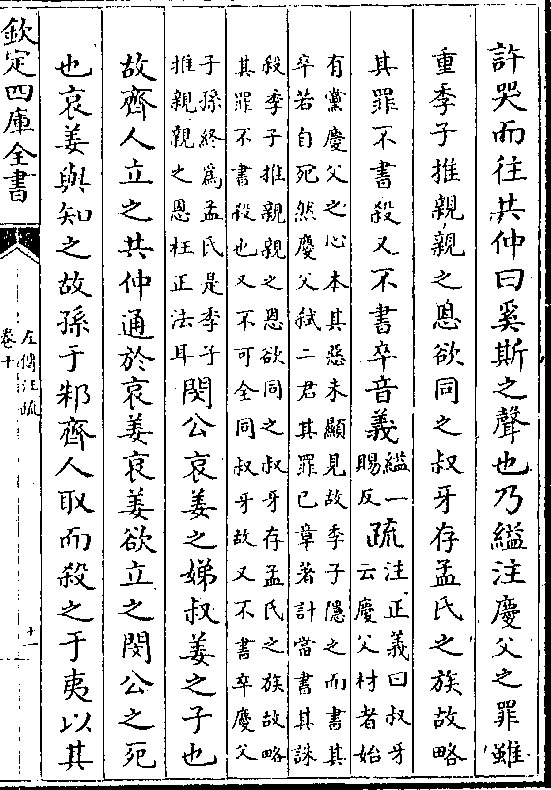 許哭而往共仲曰奚斯之聲也乃縊注慶父之罪雖
重季子推親親之恩欲同之叔牙存孟氏之族故略
其罪不書殺又不書卒音義
縊一
賜反
疏
注正義曰叔牙
云慶父材者始
有黨慶父之心本其惡未顯見故季子隱之而書其
卒若自死然慶父弑二君其罪已章著計當書其誅
殺季子推親親之恩欲同之叔牙存孟氏之族故略
其罪不書殺也又不可全同叔牙故又不書卒慶父
子孫終爲孟氏是季子
推親親之恩枉正法耳
閔公哀姜之娣叔姜之子也
故齊人立之共仲通於哀姜哀姜欲立之閔公之死
也哀姜與知之故孫于邾齊人取而殺之于夷以其
欽定四庫全書
左傳注疏
卷十
十一